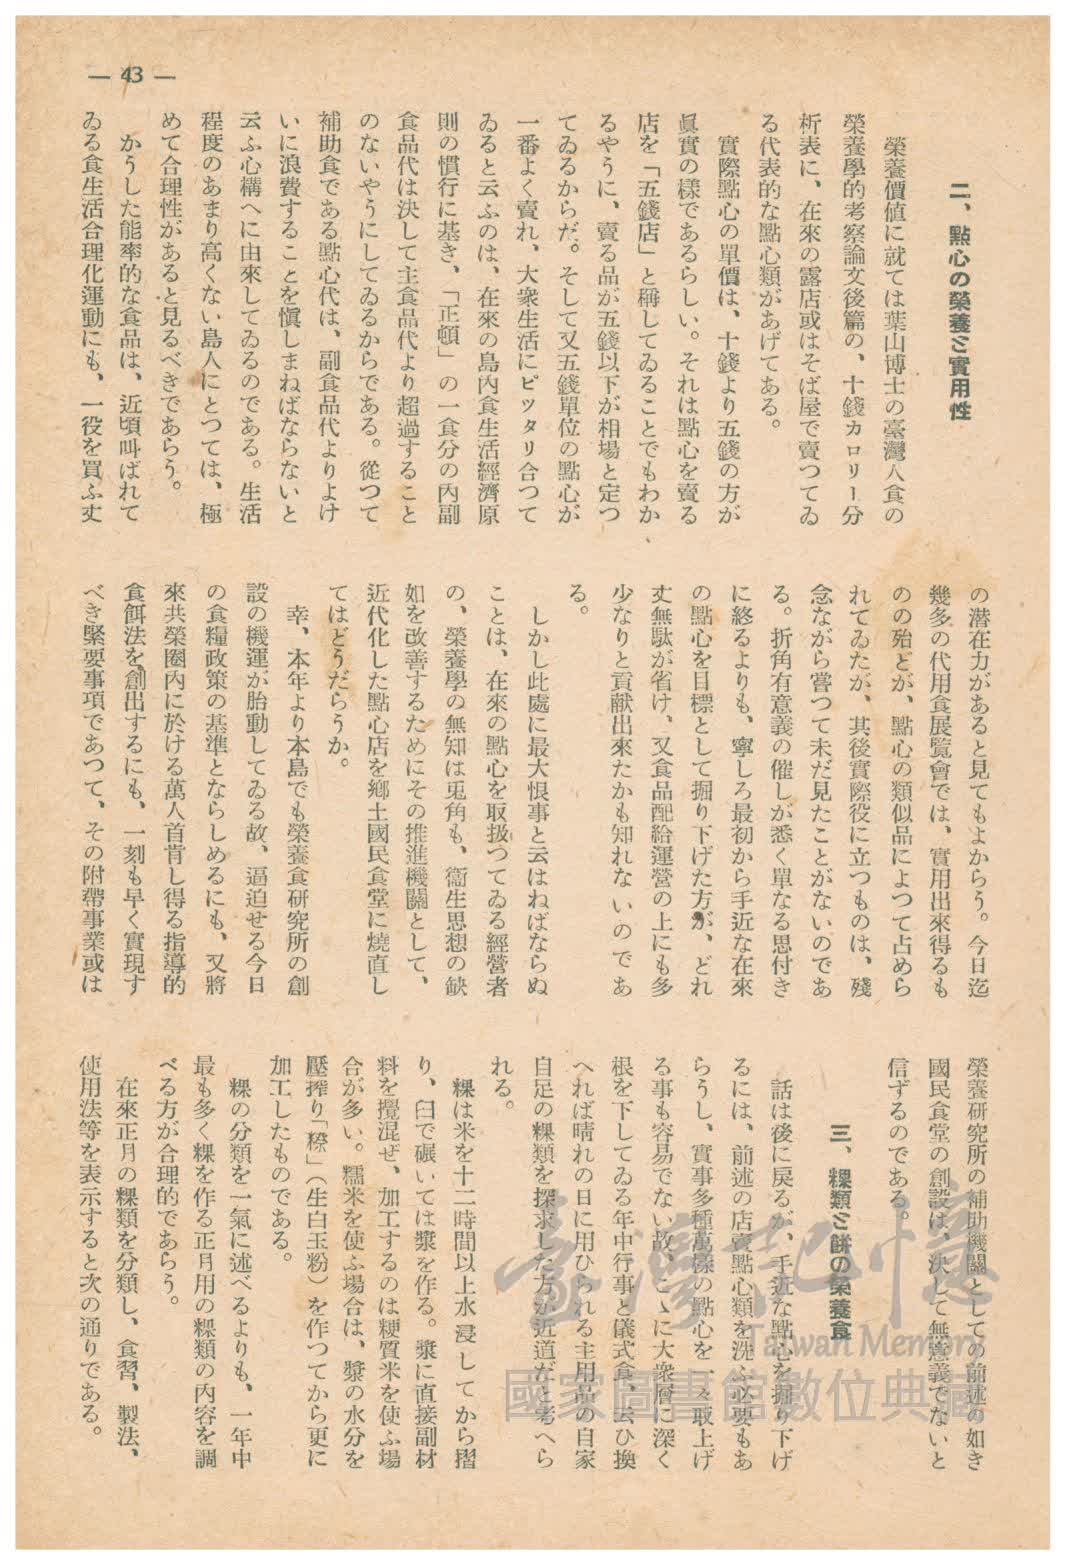 — 43 —
二、點心の榮養と實用性
榮養價値に就ては葉山博士の臺灣人食の
榮養學的考察論文後篇の、十錢カロリー分
析表に、在來の露店或はそば屋で賣つてゐ
る代表的な點心類があげてある。
實際點心の單價は、十錢より五錢の方が
眞實の樣であるらしい。それは點心を賣る
店を「五錢店」と稱してゐることでもわか
るやうに、賣る品が五錢以下が相場と定つ
てゐるからだ。そして又五錢單位の點心が
一番よく賣れ、大衆生活にピッタリ合つて
ゐると云ふのは、在來の島內食生活經濟原
則の慣行に基き、「正頓」の一食分の內副
食品代は決して主食品代より超過すること
のないやうにしてゐるからである。從つて
補助食である點心代は、副食品代よりよけ
いに浪費することを愼しまねばならないと
云ふ心構へに由來してゐるのである。生活
程度のあまり高くない島人にとつては、極
めて合理性があると見るべきであらう。
かうした能率的な食品は、近頃叫ばれて
ゐる食生活合理化運動にも、一役を買ふ丈
の潛在力があると見てもよからう。今日迄
幾多の代用食展覽會では、實用出來得るも
のの殆どが、點心の類似品によつて占めら
れてゐたが、其後實際役に立つものは、殘
念ながら嘗つて未だ見たことがないのであ
る。折角有意義の催しが悉く單なる思付き
に終るよりも、寧しろ最初から手近な在來
の點心を目標として掘り下げた方が、どれ
丈無駄が省け、又食品配給運營の上にも多
少なりと貢獻出來たかも知れないのであ
る。
しかし此處に最大恨事と云はねばならぬ
ことは、在來の點心を取扱つてゐる經營者
の、榮養學の無知は兎角も、衞生思想の缺
如を改善するためにその推進機關として、
近代化した點心店を鄕土國民食堂に燒直し
てはどうだらうか。
幸、本年より本島でも榮養食研究所の創
設の機運が胎動してゐる故、逼迫せる今日
の食糧政策の基準とならしめるにも、又將
來共榮圈內に於ける萬人首肯し得る指導的
食餌法を創出するにも、一刻も早く實現す
べき緊要事項であつて、その附帶事業或は
榮養研究所の補助機關としての前述の如き
國民食堂の創設は、決して無意義でないと
信ずるのである。
三、粿類と餠の榮養食
話は後に戻るが、手近な點心を掘り下げ
るには、前述の店賣點心類を洗ふ必要もあ
らうし、實事多種萬樣の點心を一々取上げ
る事も容易でない故、こゝに大衆層に深く
根を下してゐる年中行事と儀式食、云ひ換
へれば晴れの日に用ひられる主用品の自家
自足の粿類を探求した方が近道だと考へら
れる。
粿は米を十二時間以上水浸してから摺
り、臼で碾いては漿を作る。漿に直接副材
料を攪混ぜ、加工するのは粳質米を使ふ場
合が多い。糯米を使ふ場合は、漿の水分を
壓搾り「粶」(生白玉粉)を作つてから更に
加工したものである。
粿の分類を一氣に述べるよりも、一年中
最も多く粿を作る正月用の粿類の內容を調
べる方が合理的であらう。
在來正月の粿類を分類し、食習、製法、
使用法等を表示すると次の通りである。
臺灣記憶
Taiwan Memory
國家圖書館數位典藏